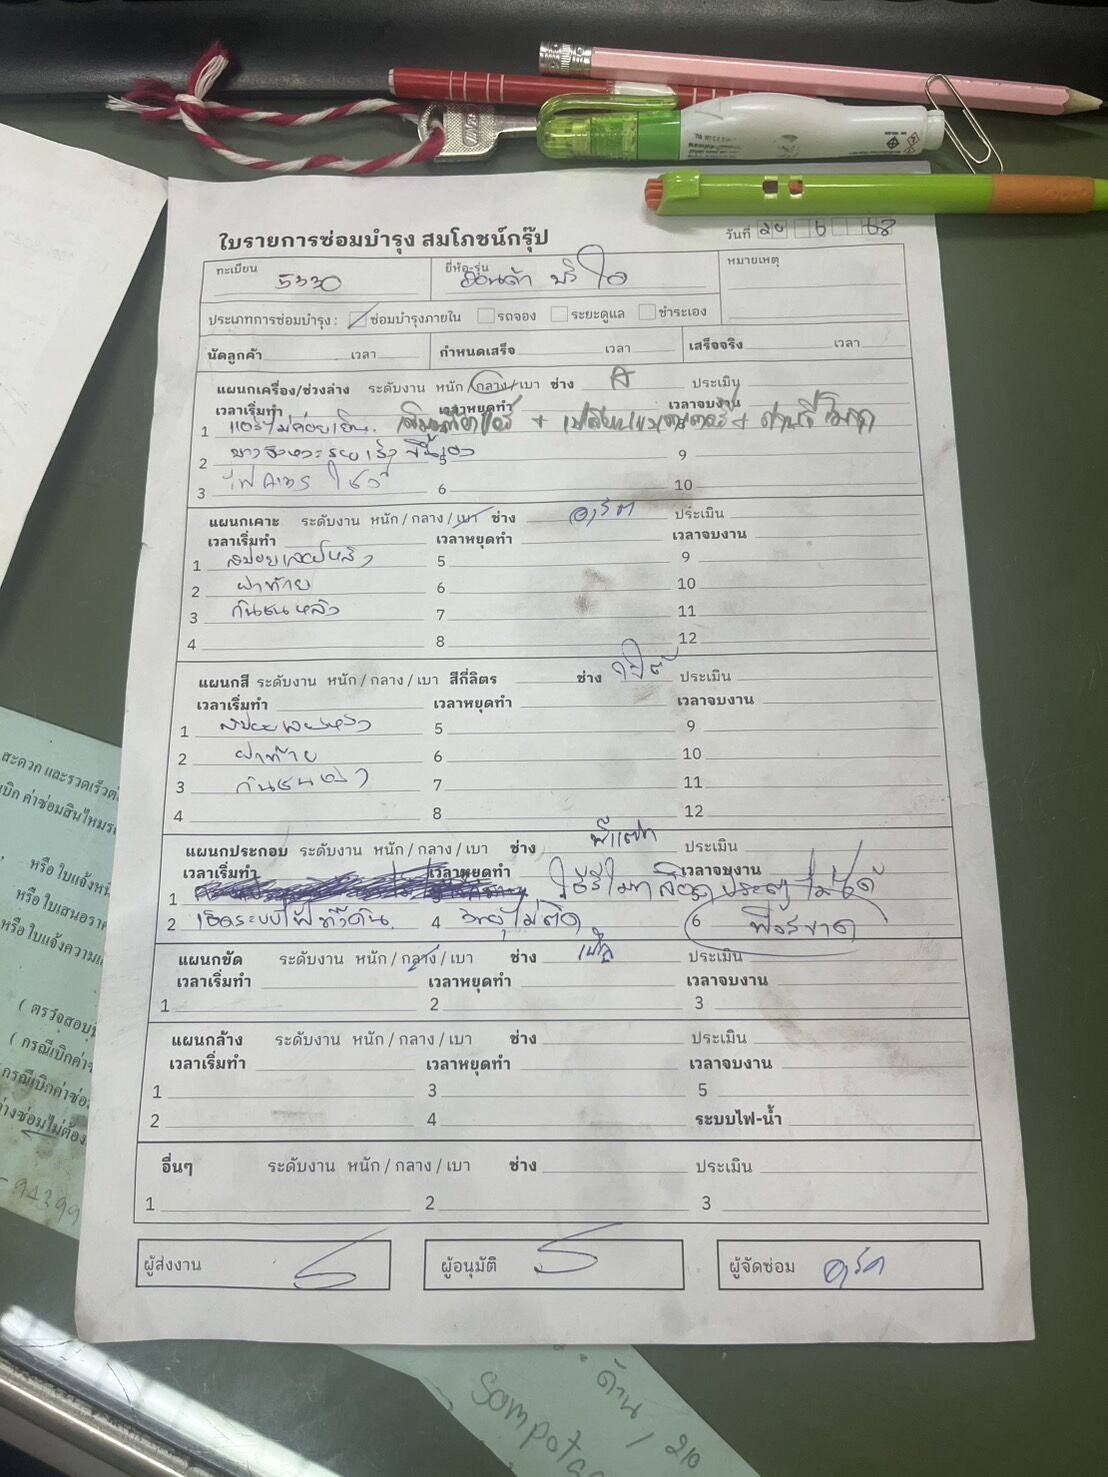 ใบรายการซ่อมบำรุง สมโภชน์กรุ๊ป
วันที่ 20 6 68
ทะเบียน 5330 ยี่ห้อ-รุ่น ฮอนด้า บริโอ้ หมายเหตุ
ประเภทการซ่อมบำรุง : ซ่อมบำรุงภายใน รถจอง ระยะดูแล ชำระเอง
นัดลูกค้า เวลา กำหนดเสร็จ เวลา เสร็จจริง เวลา
แผนกเครื่อง/ช่วงล่าง ระดับงาน หนัก / กลาง / เบา ช่าง ประเมิน
เวลาเริ่มทำ เวลาหยุดทำ เวลาจบงาน
1 แอร์ไม่ค่อยเย็น. เติมน้ำยาแอร์ + เปลี่ยนแบตเตอรี่ + ถ่านรีโมท
2 บางจังหวะรอบเร่งขึ้นเอง 9
3 6 10
แผนกเคาะ ระดับงาน หนัก / กลาง / เบา ช่าง ประเมิน
เวลาเริ่มทำ เวลาหยุดทำ เวลาจบงาน
1 5 9
2 ฝาท้าย 6 10
3 กันชนหลัง 7 11
4 8 12
แผนกสี ระดับงาน หนัก / กลาง / เบา สีกี่ลิตร ช่าง ประเมิน
เวลาเริ่มทำ เวลาหยุดทำ เวลาจบงาน
1 5 9
2 ฝาท้าย 6 10
3 กันชนหลัง 7 11
4 8 12
แผนกประกอบ ระดับงาน หนัก / กลาง / เบา ช่าง ประเมิน
เวลาเริ่มทำ เวลาหยุดทำ เวลาจบงาน
1 ใช้รีโมทล็อคประตูไม่ได้
2 เช็คระบบไฟทั้งคัน 4 วิทยุไม่ติด 6 ฟิวส์ขาด
แผนกขัด ระดับงาน หนัก / กลาง / เบา ช่าง ประเมิน
เวลาเริ่มทำ เวลาหยุดทำ เวลาจบงาน
1 2 3
แผนกล้าง ระดับงาน หนัก / กลาง / เบา ช่าง ประเมิน
เวลาเริ่มทำ เวลาหยุดทำ เวลาจบงาน
1 3 5
2 4 ระบบไฟ-น้ำ
อื่นๆ ระดับงาน หนัก / กลาง / เบา ช่าง ประเมิน
1 2 3
ผู้ส่งงาน ผู้อนุมัติ ผู้จัดซ่อม
สะดวก และรวดเร็ว
เบิก ค่าซ่อมสินไหม
หรือ ใบแจ้ง
หรือ ใบเสนอรา
หรือ ใบแจ้งความ
( ตรวจสอบ
( กรณีเบิกค่า
กรณีเบิกค่าซ่อ
ซ่อมไม่ต้อง
94399
ด้าน / 210